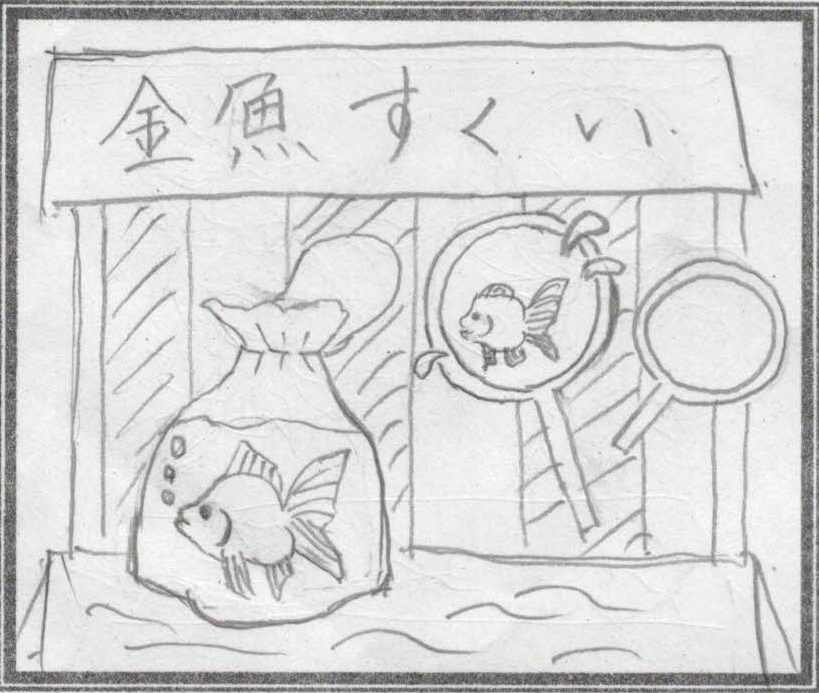 金魚すくい